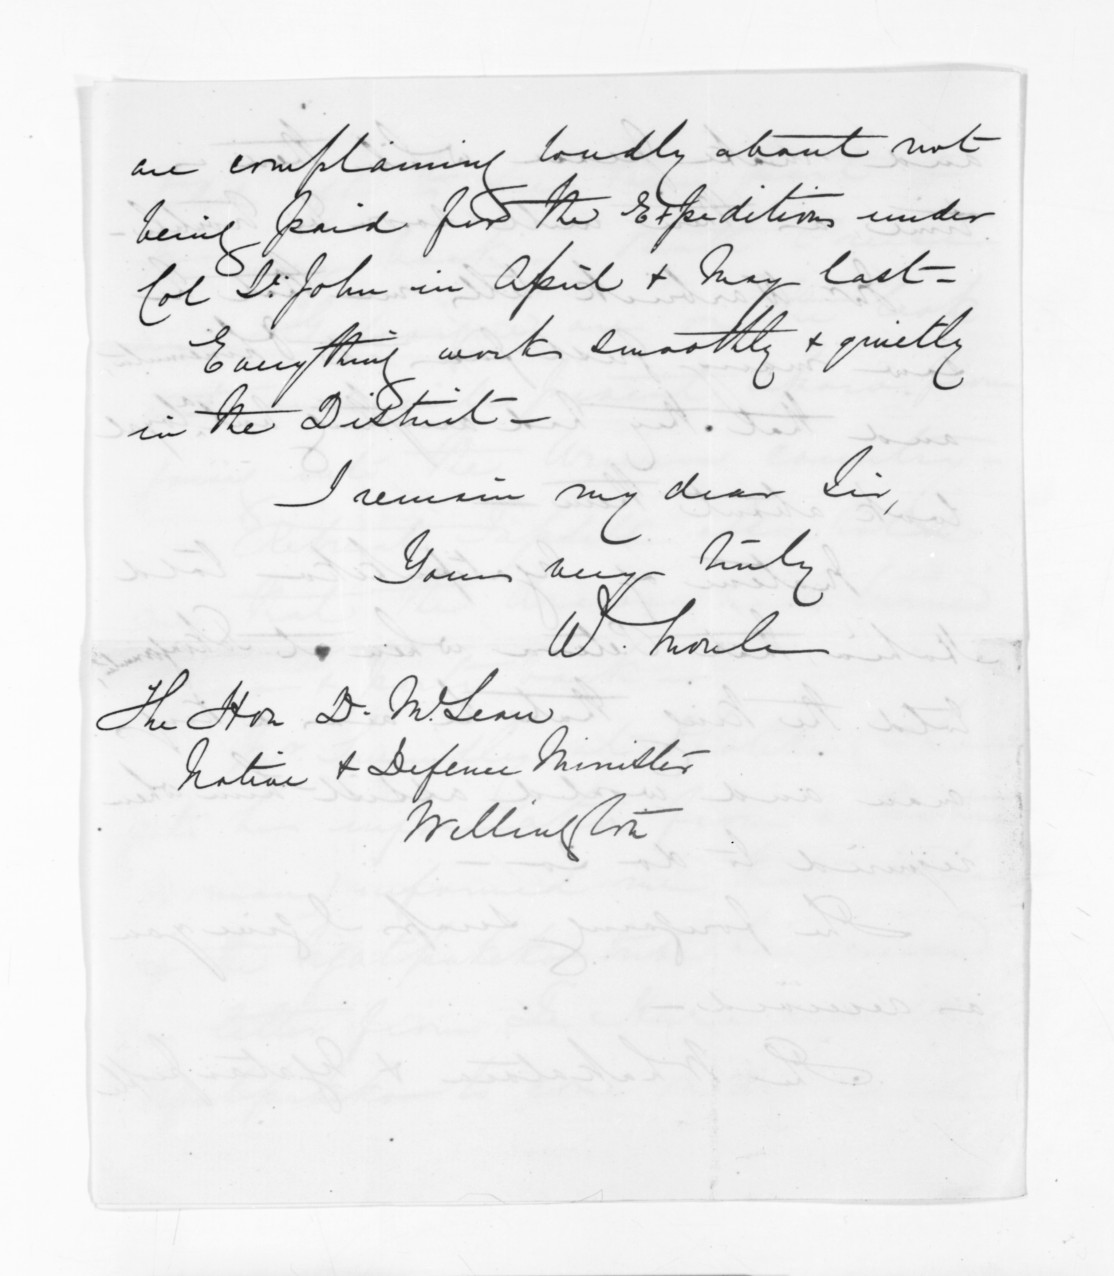 are complaining loudly about not
being paid for the Expeditions under
Col St. John in April & May last -
Everything works smoothly & quietly
in the District -
I remain my dear Sir,
Yours very truly
W. Moule
The Hon D. McLean
Native & Defence Minister
Wellington